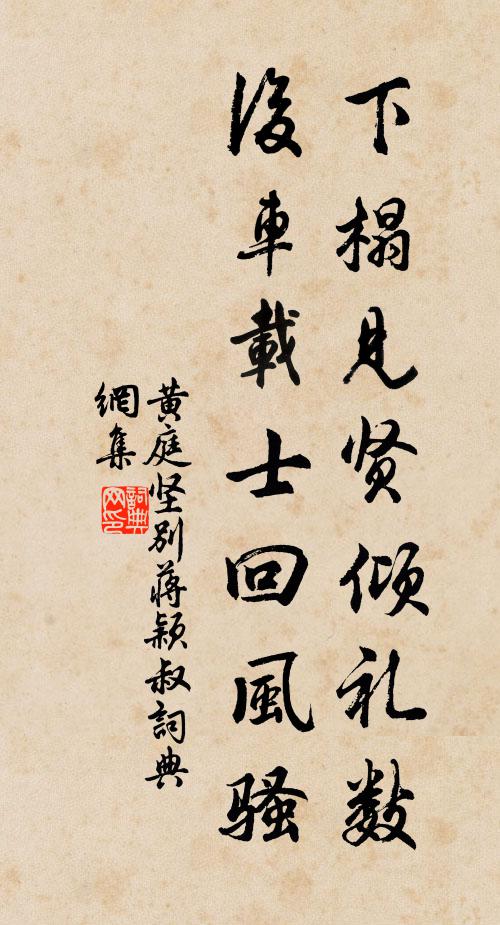 下榻见贤倾礼数
後車載士回風骚
黄庭坚别蒋颖叔詞典
網集
詞典网印